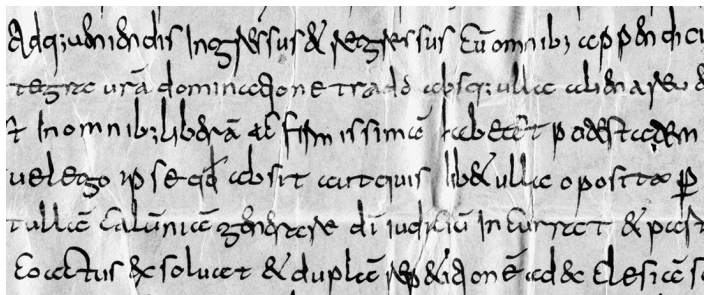 adq; ueniendis ingressus & regressus cu omnib; append
tegre urā dominacione trado absq; ulla
& In omnib; liberā ac firmissimā habeat potestatem
uel ego ipse qđ absit aut quis lib& ulla oposita p
t ullā calūniā generare di iudiciū incurrat & pos
Coactus & soluat & duplā rep&icionē ad & clesiā s